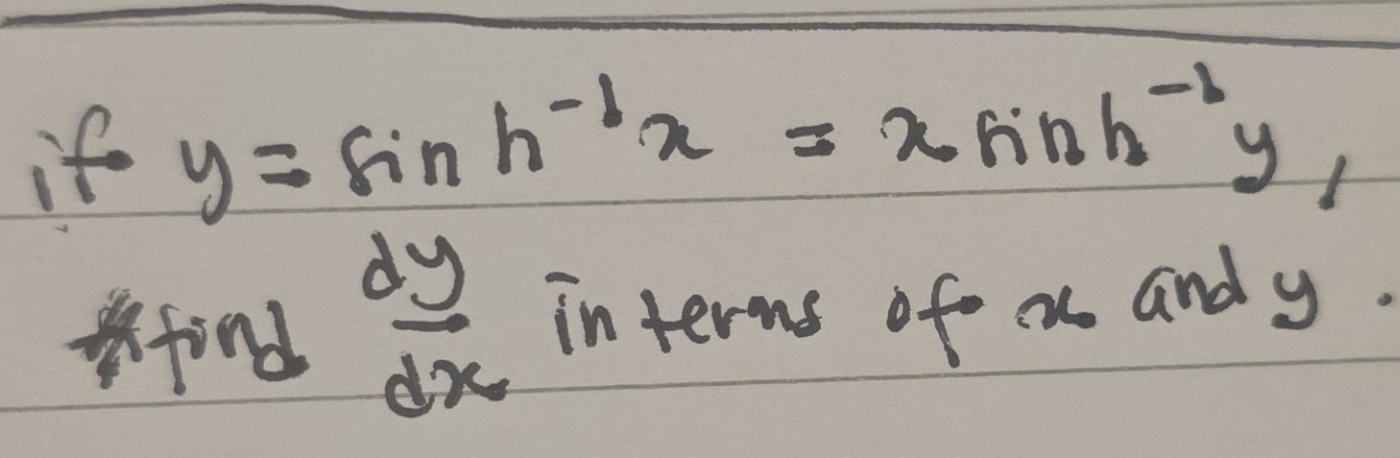 if y = sinh⁻¹x = x sinh⁻¹y,
find dy/dx in terms of x and y.